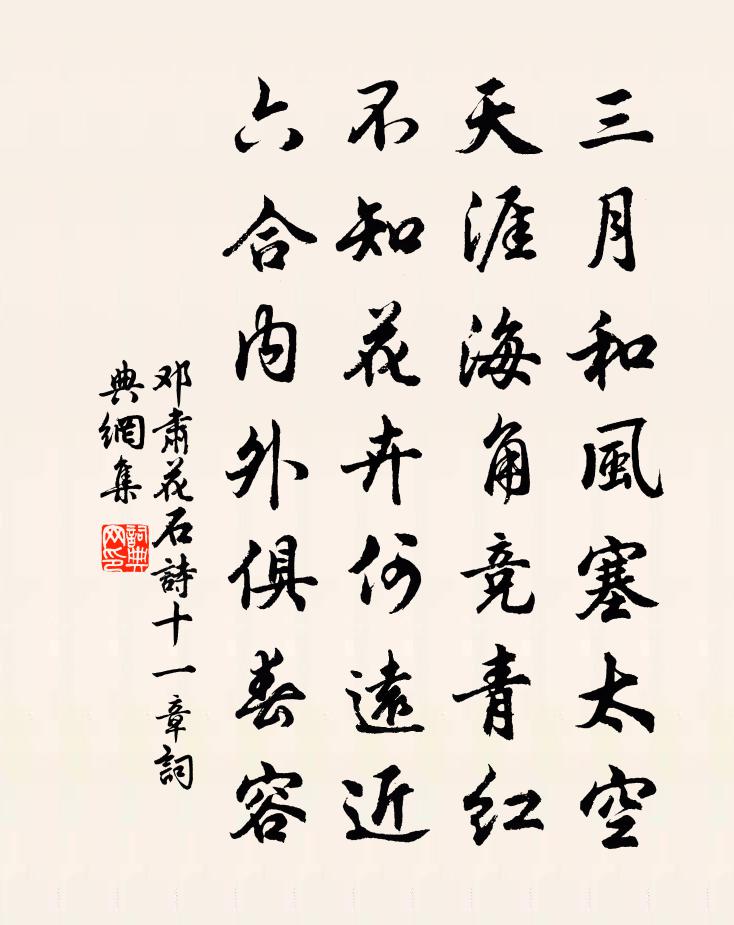 三月和風塞太空
天涯海角竞青红
不知花卉何遠近
六合内外俱春容
邓肅花石詩十一章詞
典網集
詞典
网印